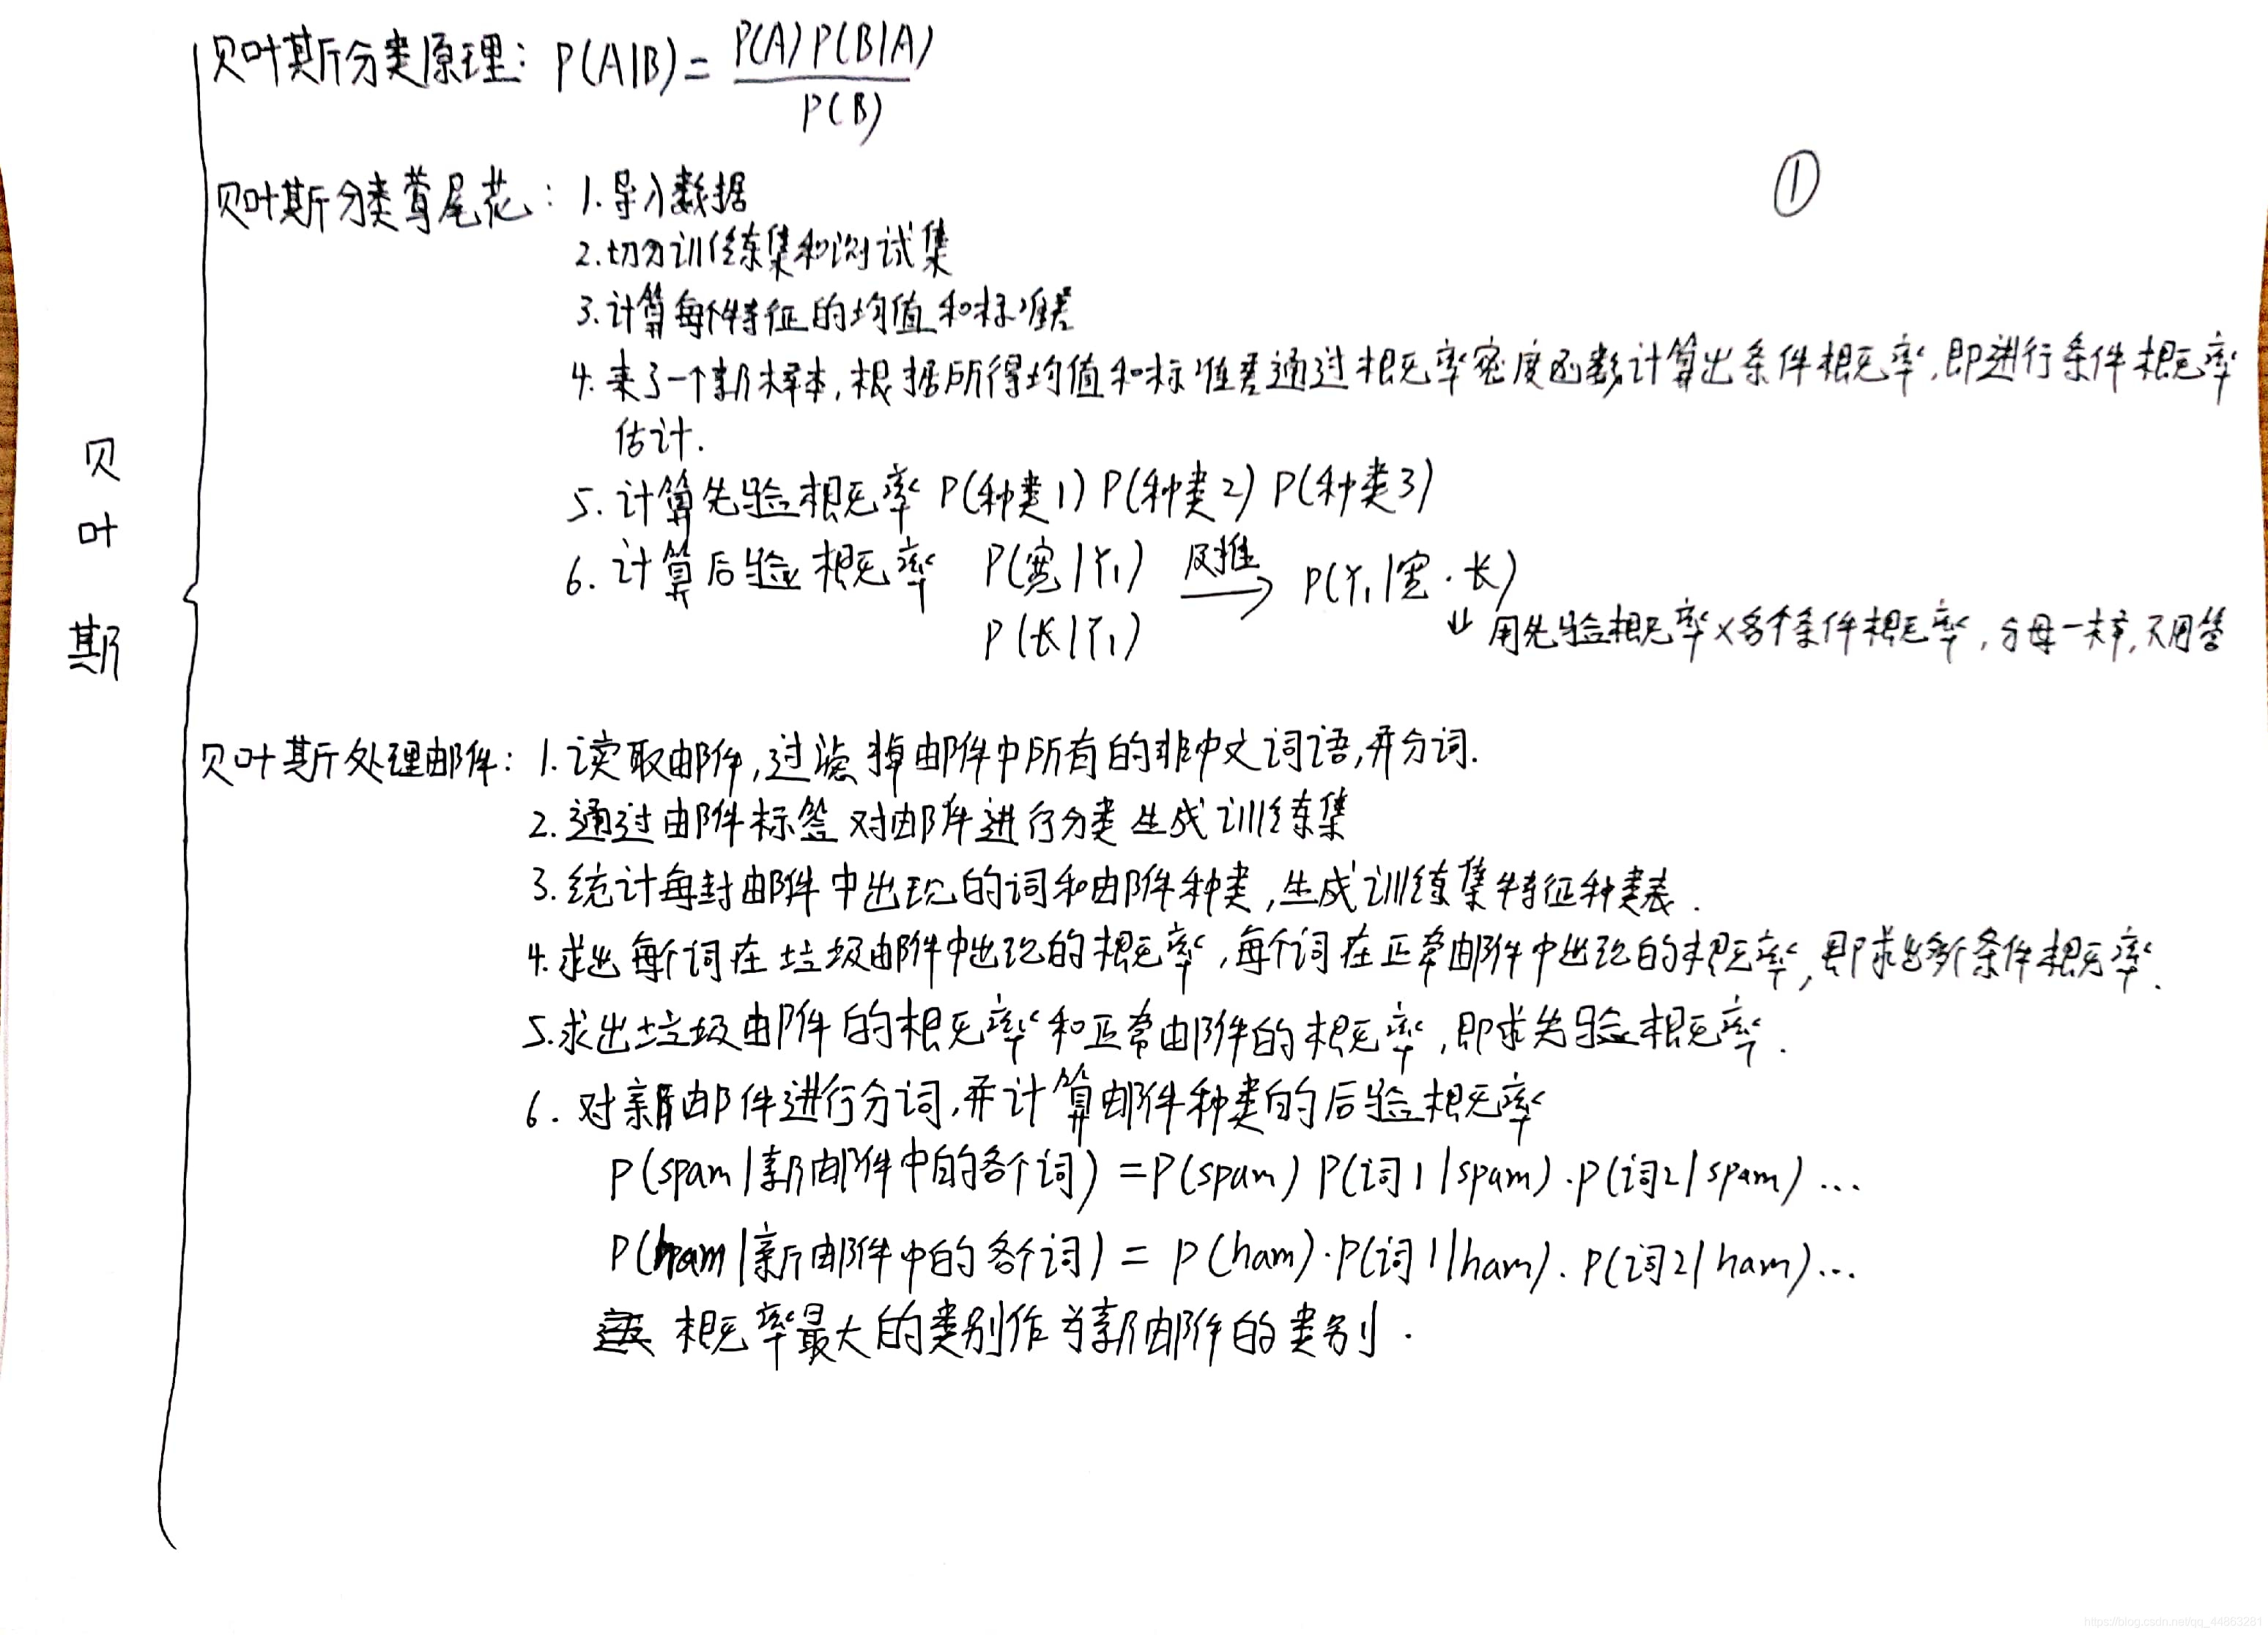 贝叶斯分类原理: P(A|B) = P(A)P(B|A) / P(B)
①
贝叶斯分类鸢尾花: 1.导入数据
2.切分训练集和测试集
3.计算每个特征的均值和标准差
4.来了一个新样本,根据所得均值和标准差通过概率密度函数计算出条件概率,即进行条件概率
估计.
5.计算先验概率 P(种类1) P(种类2) P(种类3)
6.计算后验概率 P(宽|Y₁) 反推→ P(Y₁|宽·长)
P(长|Y₁)
⇓ 用先验概率×各个条件概率,分母一样,不用管
贝叶斯
贝叶斯处理邮件: 1.读取邮件,过滤掉邮件中所有的非中文词语,并分词.
2.通过邮件标签对邮件进行分类生成训练集
3.统计每封邮件中出现的词和邮件种类,生成训练集特征种类表.
4.求出每个词在垃圾邮件中出现的概率,每个词在正常邮件中出现的概率,即求出多个条件概率.
5.求出垃圾邮件的概率和正常邮件的概率,即求先验概率.
6.对新邮件进行分词,并计算邮件种类的后验概率
P(spam|新邮件中的各个词) = P(spam) P(词1|spam)·P(词2|spam)...
P(ham|新邮件中的各个词) = P(ham)·P(词1|ham)·P(词2|ham)...
概率最大的类别作为新邮件的类别.
https://blog.csdn.net/qq_44863281